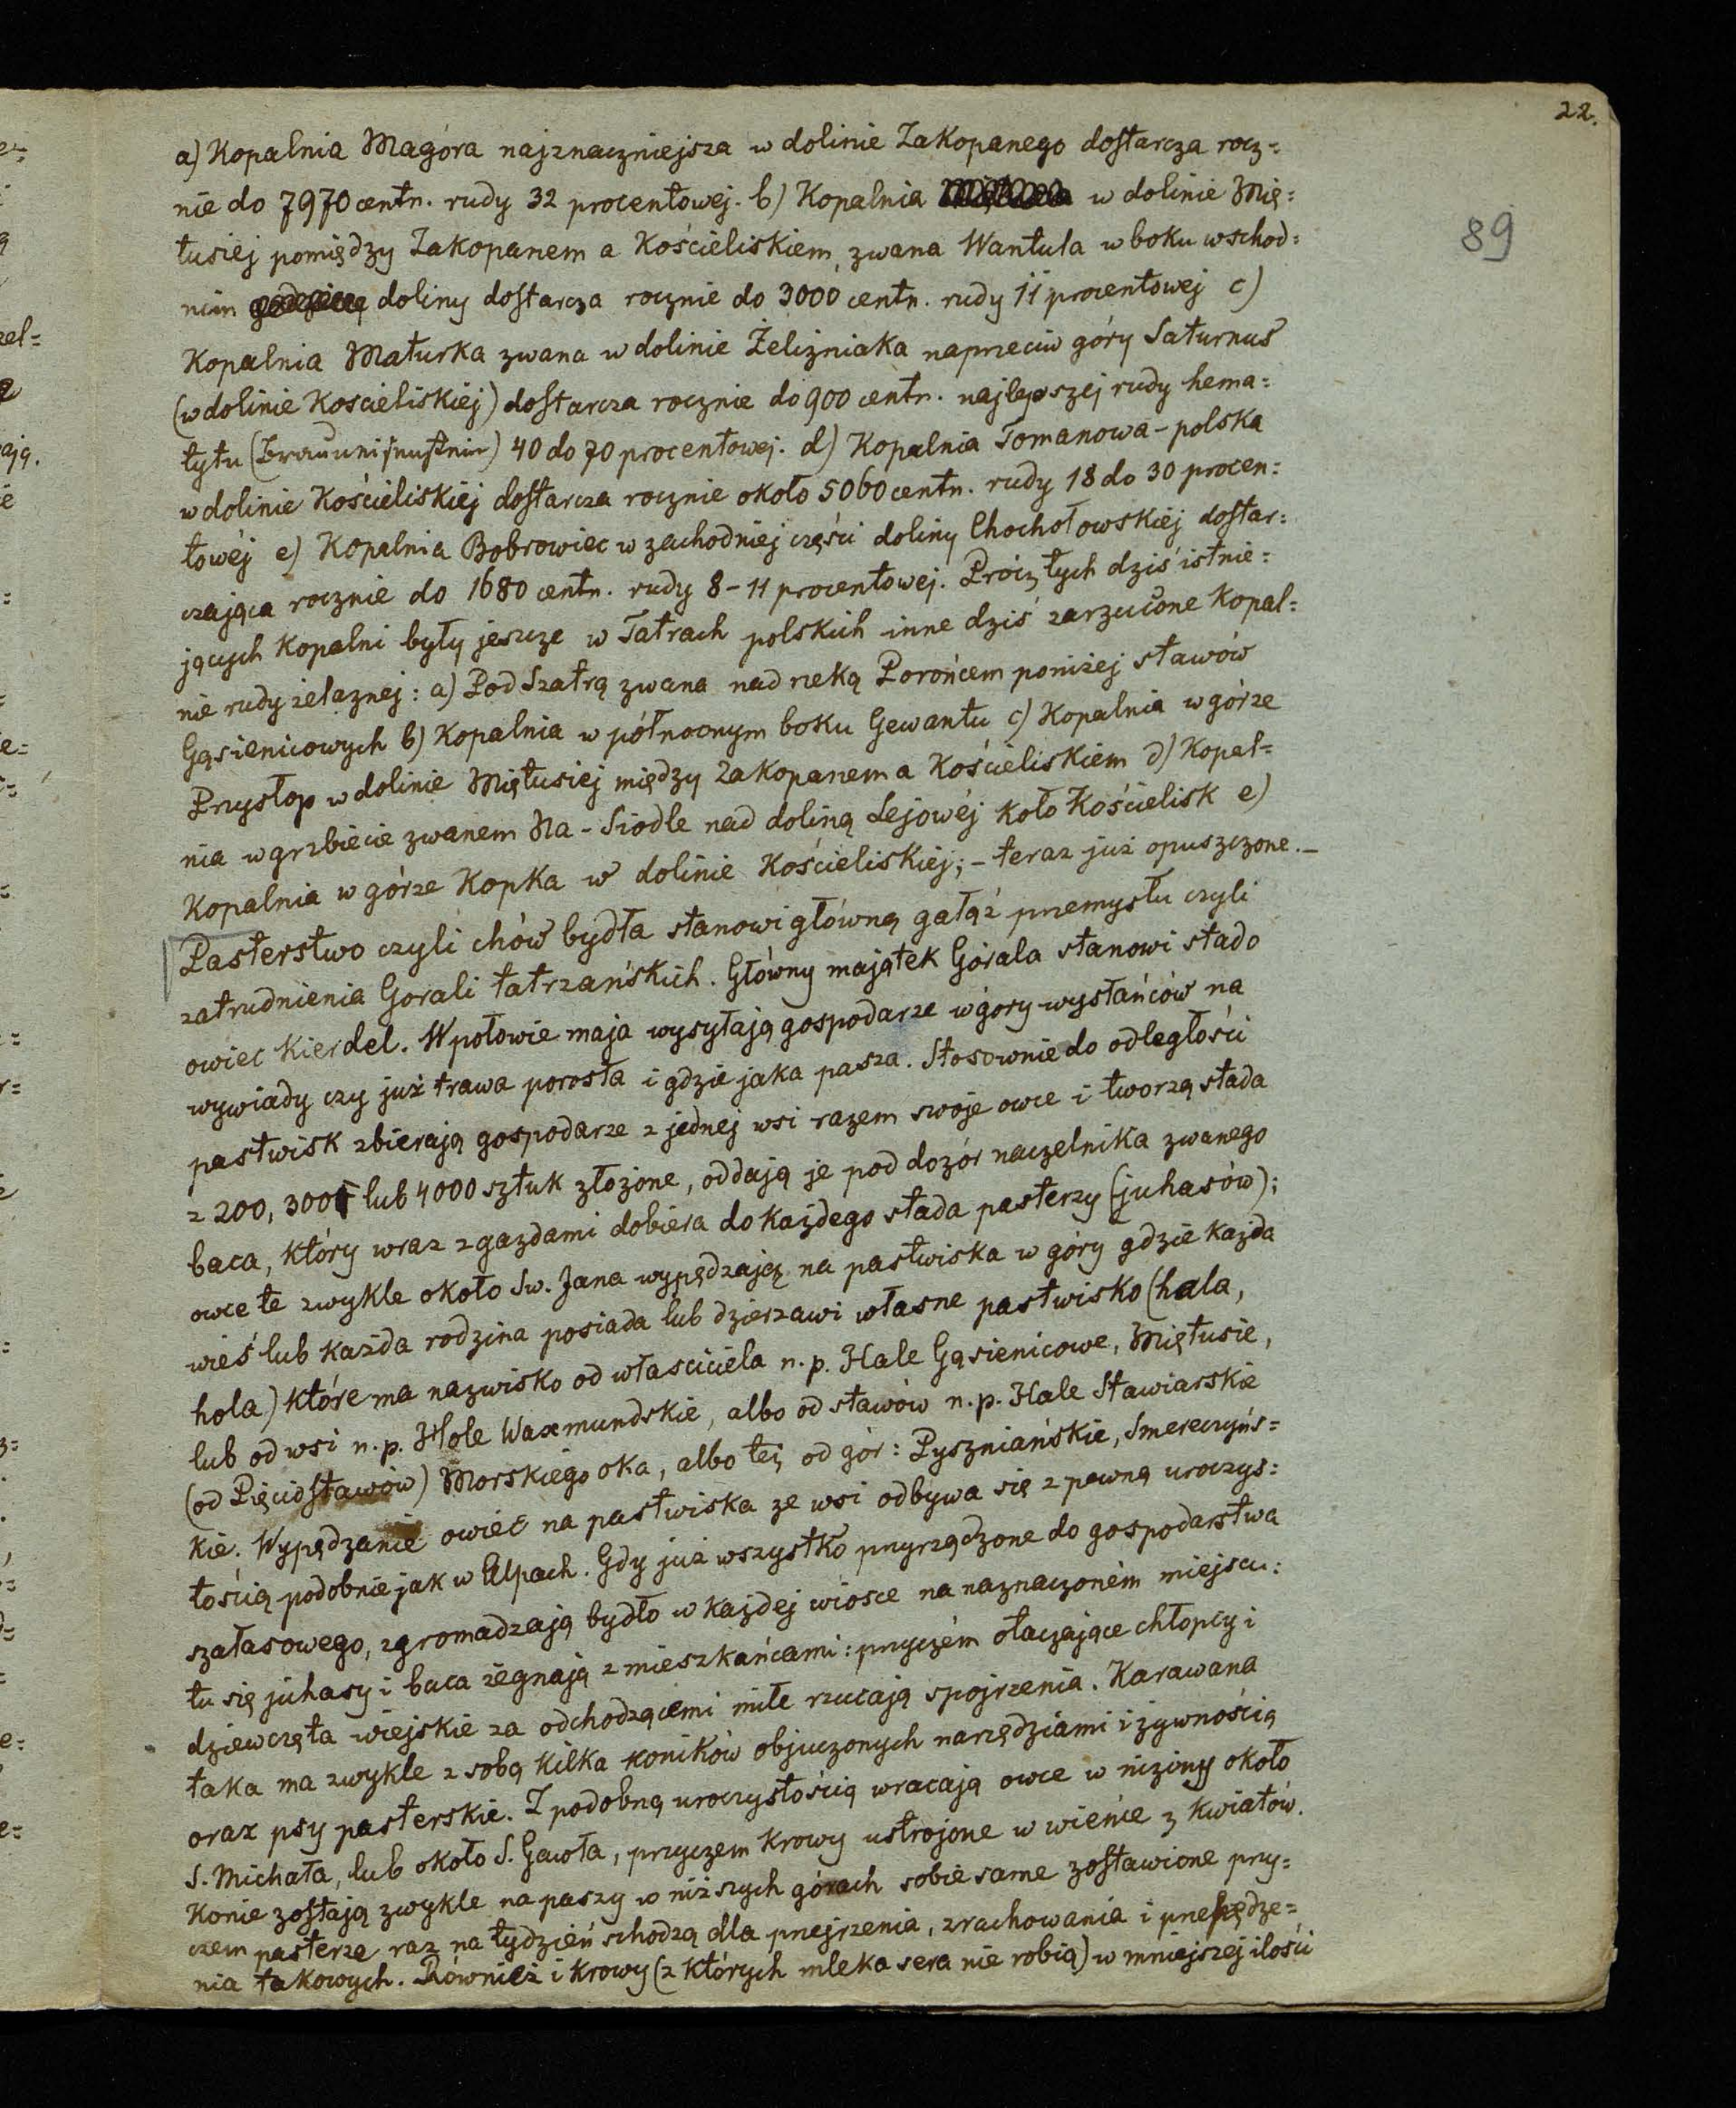 22.
89
a) Kopalnia Magóra najznaczniejsza w dolinie Zakopanego dostarcza rocz=
nie do 7970 centn. rudy 32 procentowej. b) Kopalnia w dolinie Mię=
tusiej pomiędzy Zakopanem a Kościeliskiem, zwana Wantula w boku wschod=
nim doliny dostarcza rocznie do 3000 centn. rudy 11 procentowej c)
Kopalnia Maturka zwana w dolinie Żeliźniaka naprzeciw góry Saturnus
(w dolinie Kościeliskiéj) dostarcza rocznie do 900 centn. najlepszej rudy hema=
tytu (Brauneisenstein) 40 do 70 procentowej. d) Kopalnia Tomanowa-polska
w dolinie Kościeliskiéj dostarcza rocznie około 5060 centn. rudy 18 do 30 procen=
towéj e) Kopalnia Bobrowiec w zachodniej części doliny Chochołowskiéj dostar=
czająca rocznie do 1680 centn. rudy 8-11 procentowej. Prócz tych dziś istnie=
jących kopalni były jeszcze w Tatrach polskich inne dziś zarzucone kopal=
nie rudy żelaznej: a) Pod Szatrą zwana nad rzeką Porońcem poniżej stawów
Gąsienicowych b) Kopalnia w północnym boku Gewantu c) Kopalnia w górze
Przysłop w dolinie Miętusiej między Zakopanem a Kościeliskiem d) Kopal=
nia w grzbiecie zwanem Na-Siodle nad doliną Lejowéj koło Kościelisk e)
Kopalnia w górze Kopka w dolinie Kościeliskiéj; - teraz już opuszczone. -
Pasterstwo czyli chów bydła stanowi główną gałąź przemysłu czyli
zatrudnienia Gorali tatrzańskich. Główny majątek Górala stanowi stado
owiec Kierdel. W połowie maja wysyłają gospodarze w góry wysłańców na
wywiady czy już trawa porosła i gdzie jaka pasza. Stosownie do odległości
pastwisk zbierają gospodarze z jednej wsi razem swoje owce i tworzą stada
z 200, 300 lub 4000 sztuk złożone, oddają je pod dozór naczelnika zwanego
baca, który wraz z gazdami dobiera do każdego stada pasterzy (juhasów);
owce te zwykle około Sw. Jana wypędzają na pastwiska w góry gdzie każda
wieś lub każda rodzina posiada lub dzierzawi własne pastwisko (hala,
hola) które ma nazwisko od własciciela n.p. Hale Gąsienicowe, Miętusie,
lub od wsi n.p. Hole Waxmundskie, albo od stawów n.p. Hale Stawiarskie
(od Pięciostawów) Morskiego oka, albo też od gór: Pyszniańskie, Smereczyńs=
kie. Wypędzanie owiec na pastwiska ze wsi odbywa się z pewną uroczys=
tością podobnie jak w Alpach. Gdy już wszystko przyrządzone do gospodarstwa
szałasowego, zgromadzają bydło w każdej wiosce na naznaczoném miejscu:
tu się juhasy i baca żegnają z mieszkańcami: przyczém otaczające chłopcy i
dziewczęta wiejskie za odchodzącemi miłe rzucają spojrzenia. Karawana
taka ma zwykle z sobą kilka koników objuczonych narzędziami i żywnością
oraz psy pasterskie. Z podobną uroczystością wracają owce w niziny około
S. Michała, lub około S. Gawła, przyczem krowy ustrojone w wieńce z kwiatów.
Konie zostają zwykle na paszy w niższych górach sobie same zostawione przy=
czem pasterze raz na tydzień schodzą dla przejrzenia, zrachowania i przepędze=
nia takowych. Również i krowy (z których mleka sera nie robią) w mniejszej ilości